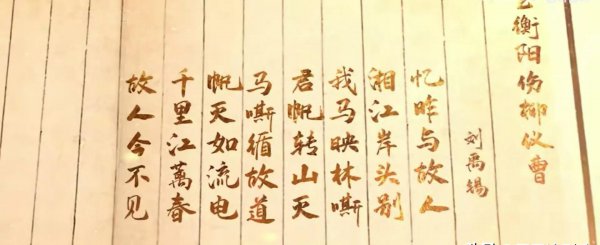 至衡阳伤柳仪曹
刘禹锡
忆昨与故人
湘江岸头别
我马映林嘶
君帆转山灭
马嘶循故道
帆灭如流电
千里江萬春
故人今不见